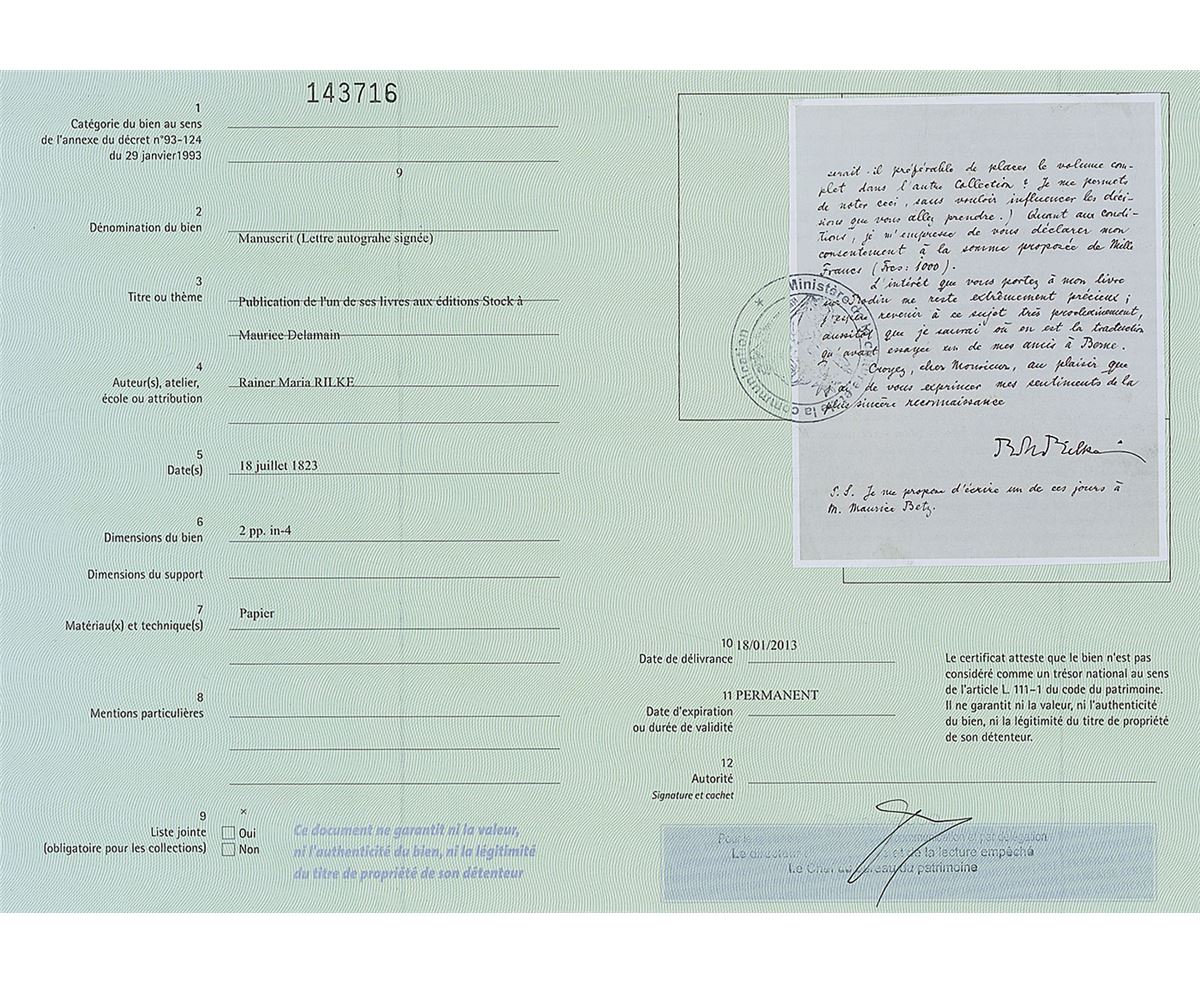 143716
1
Catégorie du bien au sens
de l'annexe du décret n°93-124
du 29 janvier1993
9
2
Dénomination du bien
Manuscrit (Lettre autograhe signée)
3
Titre ou thème
Publication de l'un de ses livres aux éditions Stock à
Maurice Delamain
4
Auteur(s), atelier,
école ou attribution
Rainer Maria RILKE
5
Date(s)
18 juillet 1823
6
Dimensions du bien
2 pp. in-4
Dimensions du support
7
Matériau(x) et technique(s)
Papier
8
Mentions particulières
9
Liste jointe
(obligatoire pour les collections)
×
Oui
Non
Ce document ne garantit ni la valeur,
ni l'authenticité du bien, ni la légitimité
du titre de propriété de son détenteur
serait-il préférable de placer le volume com-
plet dans l'autre Collection ? Je me permets
de noter ceci, sans vouloir influencer les déci-
sions que vous allez prendre.) Quant aux condi-
tions, je m'empresse de vous déclarer mon
consentement à la somme proposée de Mille
Francs (Frcs: 1000).
L'intérêt que vous portez à mon livre
Rodin me reste extrêmement précieux ;
revenir à ce sujet très prochainement,
aussitôt que je saurai où en est la traduction
qu'avait essayée un de mes amis à Berne.
Croyez, cher Monsieur, au plaisir que
j'ai de vous exprimer mes sentiments de la
plus sincère reconnaissance
RMRilke
P.S. Je me propose d'écrire un de ces jours à
M. Maurice Betz.
Ministère de la communication
10
Date de délivrance
18/01/2013
11
Date d'expiration
ou durée de validité
PERMANENT
12
Autorité
Signature et cachet
Le certificat atteste que le bien n'est pas
considéré comme un trésor national au sens
de l'article L. 111-1 du code du patrimoine.
Il ne garantit ni la valeur, ni l'authenticité
du bien, ni la légitimité du titre de propriété
de son détenteur.
Pour et par délégation
Le directeur et de la lecture empêché
Le Chef du bureau du patrimoine